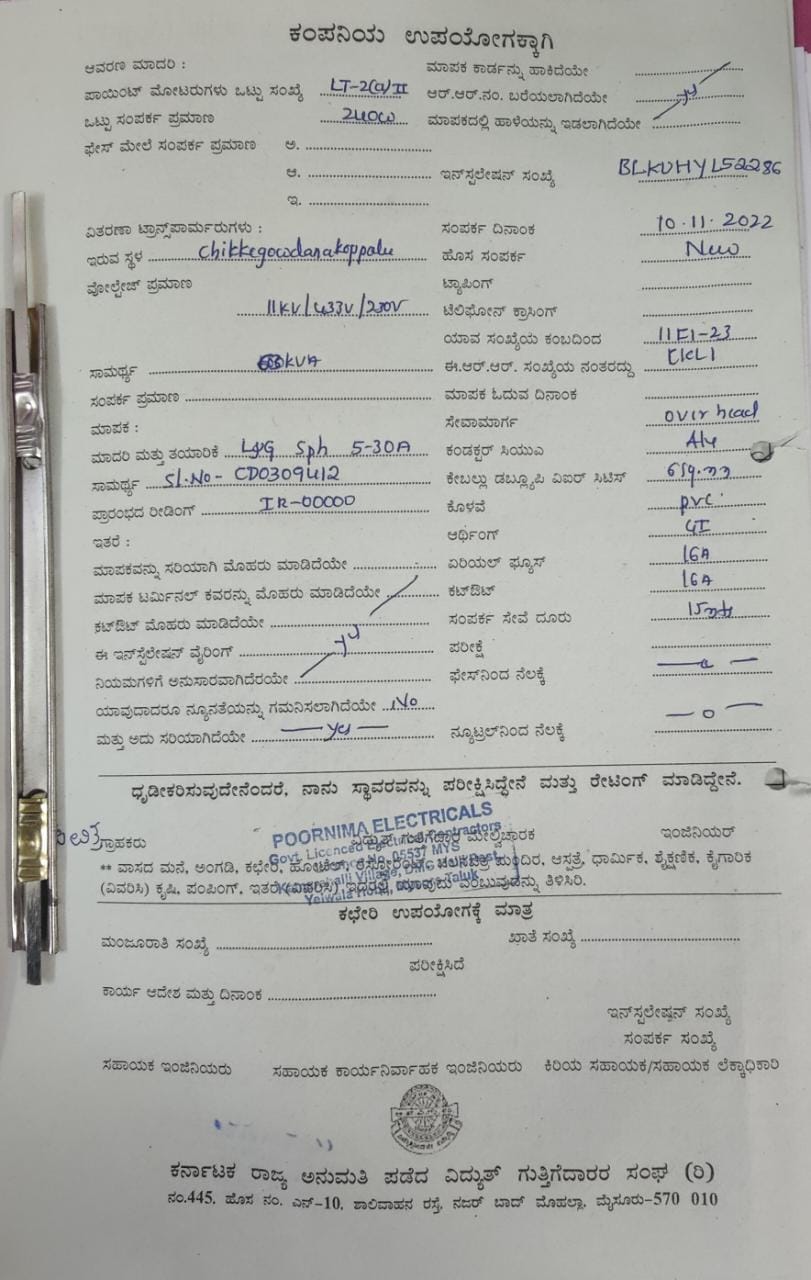 ಕಂಪನಿಯ ಉಪಯೋಗಕ್ಕಾಗಿ
ಆವರಣ ಮಾದರಿ : ಮಾಪಕ ಕಾರ್ಡನ್ನು ಹಾಕಿದೆಯೇ
ಪಾಯಿಂಟ್ ಮೋಟರುಗಳು ಒಟ್ಟು ಸಂಖ್ಯೆ LT-2(a)II ಆರ್.ಆರ್.ನಂ. ಬರೆಯಲಾಗಿದೆಯೇ
ಒಟ್ಟು ಸಂಪರ್ಕ ಪ್ರಮಾಣ 240W ಮಾಪಕದಲ್ಲಿ ಹಾಳೆಯನ್ನು ಇಡಲಾಗಿದೆಯೇ
ಫೇಸ್ ಮೇಲೆ ಸಂಪರ್ಕ ಪ್ರಮಾಣ ಅ.
ಆ. ಇನ್‌ಸ್ಟಲೇಷನ್ ಸಂಖ್ಯೆ BLKUHYL52286
ಇ.
ವಿತರಣಾ ಟ್ರಾನ್ಸ್‌ಪಾರ್ಮರುಗಳು : ಸಂಪರ್ಕ ದಿನಾಂಕ 10.11.2022
ಇರುವ ಸ್ಥಳ Chikkegowdanakoppalu ಹೊಸ ಸಂಪರ್ಕ New
ವೋಲ್ಟೇಜ್ ಪ್ರಮಾಣ ಟ್ಯಾಪಿಂಗ್
11KV/433V/230V ಟೆಲಿಫೋನ್ ಕ್ರಾಸಿಂಗ್
ಯಾವ ಸಂಖ್ಯೆಯ ಕಂಬದಿಂದ 11F1-23
ಸಾಮರ್ಥ್ಯ KVA ಈ.ಆರ್.ಆರ್. ಸಂಖ್ಯೆಯ ನಂತರದ್ದು
ಸಂಪರ್ಕ ಪ್ರಮಾಣ ಮಾಪಕ ಓದುವ ದಿನಾಂಕ
ಮಾಪಕ : ಸೇವಾಮಾರ್ಗ over head
ಮಾದರಿ ಮತ್ತು ತಯಾರಿಕೆ L&G Sph 5-30A ಕಂಡಕ್ಟರ್ ಸಿಯುಎ Alu
ಸಾಮರ್ಥ್ಯ Sl.No- CD0309412 ಕೇಬಲ್ಲು ಡಬ್ಲ್ಯೂಪಿ ವಿಐರ್ ಸಿಟಿಸ್ 6sq.mm
ಪ್ರಾರಂಭದ ರೀಡಿಂಗ್ IR-00000 ಕೊಳವೆ pvc
ಇತರೆ : ಆರ್ಥಿಂಗ್ GI
ಮಾಪಕವನ್ನು ಸರಿಯಾಗಿ ಮೊಹರು ಮಾಡಿದೆಯೇ ಏರಿಯಲ್ ಫ್ಯೂಸ್ 16A
ಮಾಪಕ ಟರ್ಮಿನಲ್ ಕವರನ್ನು ಮೊಹರು ಮಾಡಿದೆಯೇ ಕಟ್‌ಔಟ್ 16A
ಕಟ್‌ಔಟ್ ಮೊಹರು ಮಾಡಿದೆಯೇ ಸಂಪರ್ಕ ಸೇವೆ ದೂರು 15mtr
ಈ ಇನ್‌ಸ್ಟೆಲೇಷನ್ ವೈರಿಂಗ್ ಪರೀಕ್ಷೆ
ನಿಯಮಗಳಿಗೆ ಅನುಸಾರವಾಗಿದೆರಯೇ ಫೇಸ್‌ನಿಂದ ನೆಲಕ್ಕೆ
ಯಾವುದಾದರೂ ನ್ಯೂನತೆಯನ್ನು ಗಮನಿಸಲಾಗಿದೆಯೇ No
ಮತ್ತು ಅದು ಸರಿಯಾಗಿದೆಯೇ yes ನ್ಯೂಟ್ರಲ್‌ನಿಂದ ನೆಲಕ್ಕೆ — 0 —
ಧೃಡೀಕರಿಸುವುದೇನೆಂದರೆ, ನಾನು ಸ್ಥಾವರವನ್ನು ಪರೀಕ್ಷಿಸಿದ್ದೇನೆ ಮತ್ತು ರೇಟಿಂಗ್ ಮಾಡಿದ್ದೇನೆ.
POORNIMA ELECTRICALS
Govt. Licenced Electrical Contractors
ಗ್ರಾಹಕರು ವಿದ್ಯುತ್ ಗುತ್ತಿಗೆದಾರ ಮೇಲ್ವಿಚಾರಕ ಇಂಜಿನಿಯರ್
** ವಾಸದ ಮನೆ, ಅಂಗಡಿ, ಕಛೇರಿ, ಹೋಟೆಲ್, ರೆಸ್ಟೋರೆಂಟ್, ಚಲನಚಿತ್ರ ಮಂದಿರ, ಆಸ್ಪತ್ರೆ, ಧಾರ್ಮಿಕ, ಶೈಕ್ಷಣಿಕ, ಕೈಗಾರಿಕ
(ವಿವರಿಸಿ) ಕೃಷಿ, ಪಂಪಿಂಗ್, ಇತರೆ (ವಿವರಿಸಿ) ಇದರಲ್ಲಿ ಯಾವುದು ಎಂಬುವುದನ್ನು ತಿಳಿಸಿರಿ.
ಕಛೇರಿ ಉಪಯೋಗಕ್ಕೆ ಮಾತ್ರ
ಮಂಜೂರಾತಿ ಸಂಖ್ಯೆ ಖಾತೆ ಸಂಖ್ಯೆ
ಪರೀಕ್ಷಿಸಿದೆ
ಕಾರ್ಯ ಆದೇಶ ಮತ್ತು ದಿನಾಂಕ
ಇನ್‌ಸ್ಟಲೇಷನ್ ಸಂಖ್ಯೆ
ಸಂಪರ್ಕ ಸಂಖ್ಯೆ
ಸಹಾಯಕ ಇಂಜಿನಿಯರು ಸಹಾಯಕ ಕಾರ್ಯನಿರ್ವಾಹಕ ಇಂಜಿನಿಯರು ಕಿರಿಯ ಸಹಾಯಕ/ಸಹಾಯಕ ಲೆಕ್ಕಾಧಿಕಾರಿ
ಕರ್ನಾಟಕ ರಾಜ್ಯ ಅನುಮತಿ ಪಡೆದ ವಿದ್ಯುತ್ ಗುತ್ತಿಗೆದಾರರ ಸಂಘ (ರಿ)
ನಂ.445, ಹೊಸ ನಂ. ಎನ್-10, ಶಾಲಿವಾಹನ ರಸ್ತೆ, ನಜರ್ ಬಾದ್ ಮೊಹಲ್ಲಾ, ಮೈಸೂರು-570 010